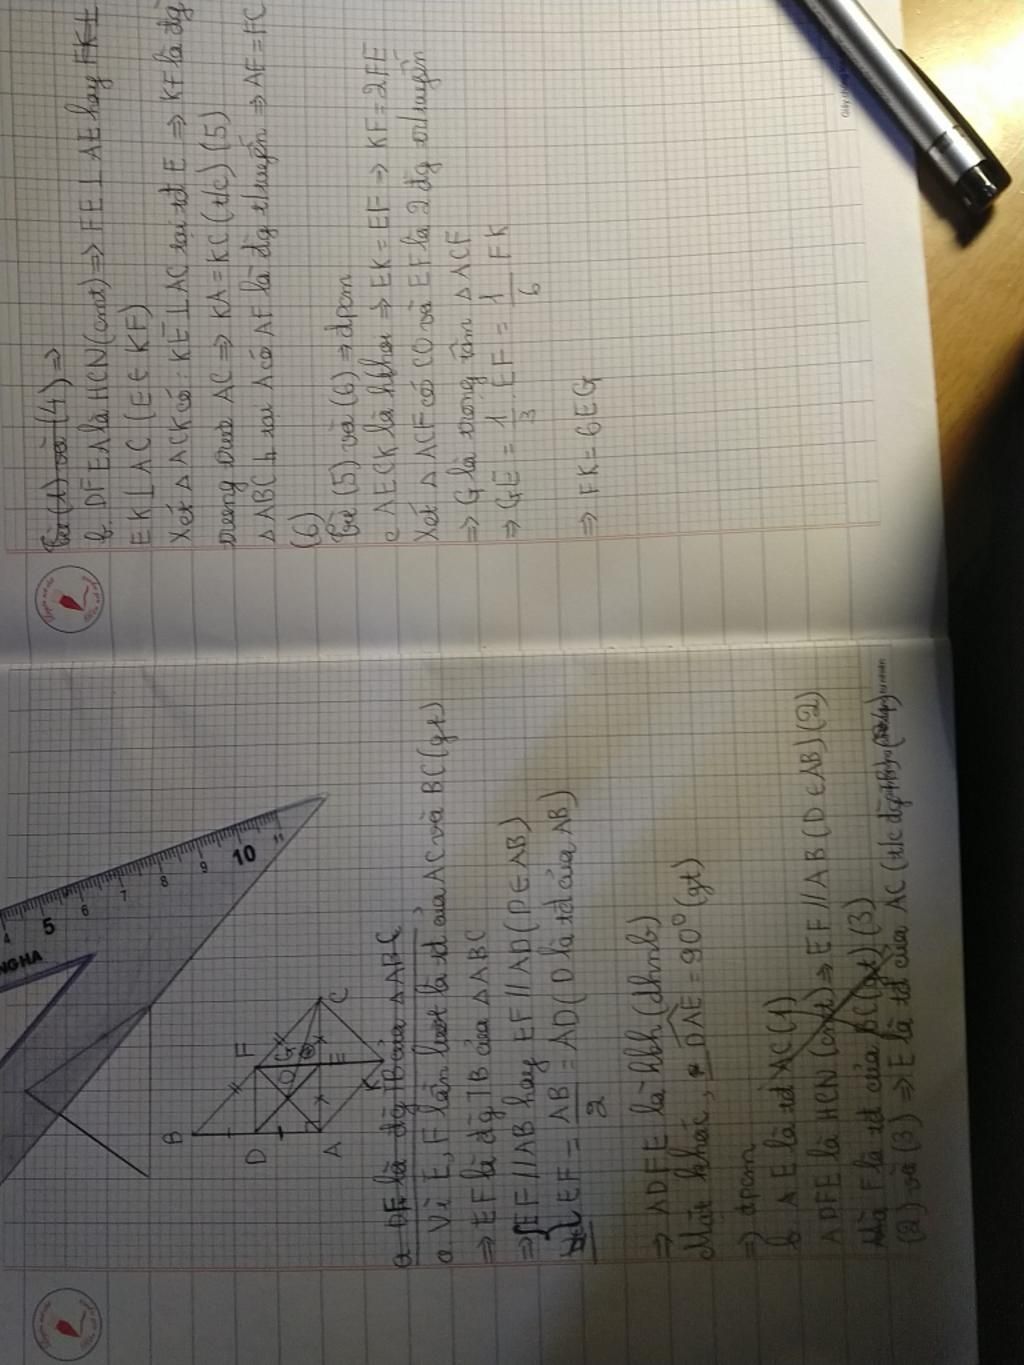 B
D
F
G
O
A
E
C
K
NGHA
4
5
6
7
8
9
10
11
a. DF là đg TB của △ABC
a. Vì E, F lần lượt là tđ của AC và BC (gt)
⇒ EF là đg TB của △ABC
⇒ { EF // AB hay EF // AD (D ∈ AB)
EF = AB/2 = AD (D là tđ của AB)
⇒ ADFE là hbh (dhnb)
Mặt khác, DAE = 90° (gt)
⇒ đpcm
b. E là tđ AC (1)
ADFE là HCN (cmt) ⇒ EF // AB (D ∈ AB) (2)
Mà F là tđ của BC (gt) (3)
(2) và (3) ⇒ E là tđ của AC (t/c
Từ (1) và (4) ⇒
b. DFEA là HCN (cmt) ⇒ FE ⊥ AE hay
EK ⊥ AC (E ∈ KF)
Xét △ACK có: KE ⊥ AC tại tđ E ⇒ KE là đg
trung trực AC ⇒ KA = KC (t/c) (5)
△ABC tại A có AF là đg t tuyến ⇒ AF = FC
(6)
Từ (5) và (6) ⇒ đpcm
c. AFCK là hthoi ⇒ EK = EF ⇒ KF = 2FE
Xét △ACF có CO và EF là 2 đg tuyến
⇒ G là trọng tâm △ACF
⇒ GE = 1/3 EF = 1/6 FK
⇒ FK = 6EG